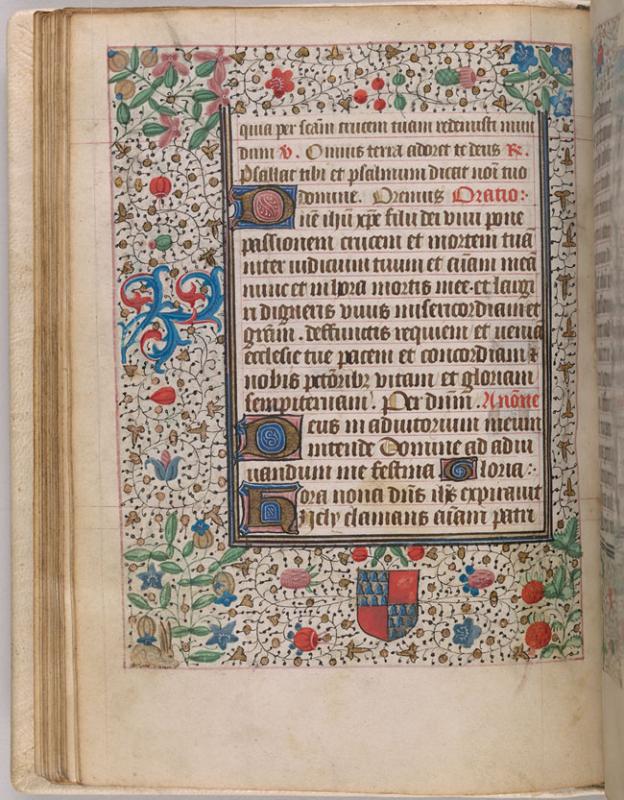 quia per scām crucem tuam redemisti mun
dum V. Omnis terra adoret te deus R.
Psallat tibi et psalmum dicat noī tuo
domine. Oremus Oratio:
Dñe ihū xp̄e fili dei viui pone
passionem crucem et mortem tuā
inter iudicium tuum et aīam meā
nunc et in hora mortis mee. et largi
ri digneris viuis misericordiam et
grām. deffunctis requiem et veniā
ecclesie tue pacem et concordiam &
nobis pctōribꝫ vitam et gloriam
sempiternam. Per dnm̄. A nōne
Deus in adiutorium meum
intende Domine ad adiu
uandum me festina Gloria:
Hora nona dn̄s ih̄s expirauit
Hely clamans aīam patri